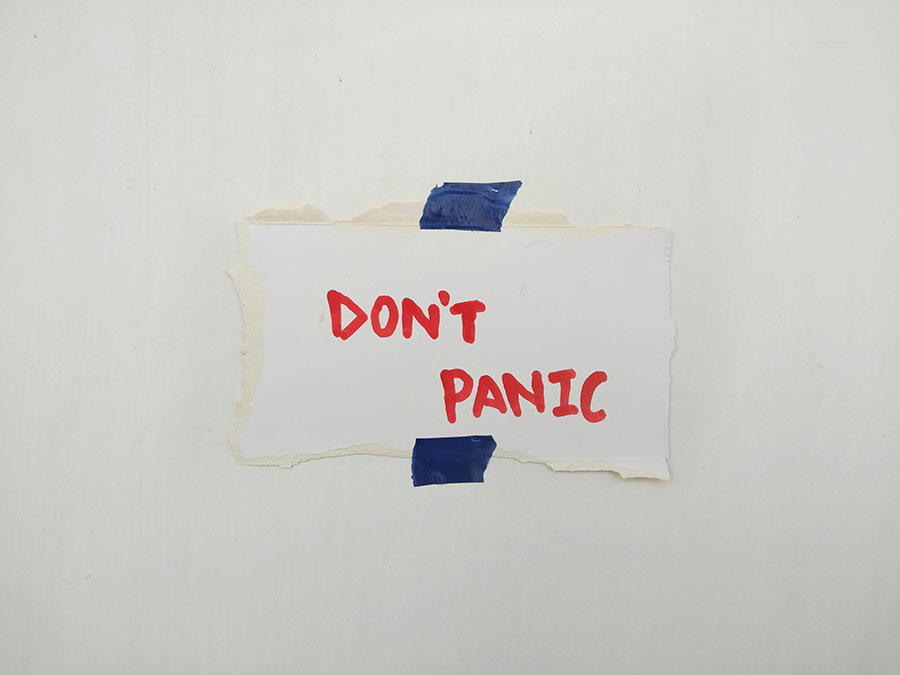 DON'T
PANIC